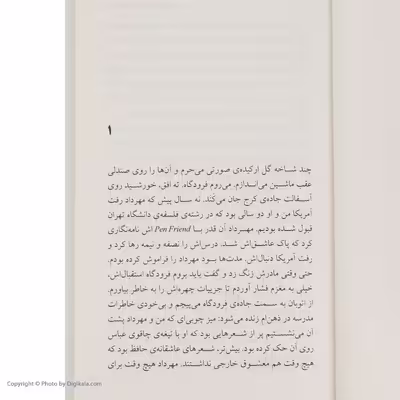 ۱
چند شاخه گل ارکیده‌ی صورتی می‌خرم و آن‌ها را روی صندلی
عقب ماشین می‌اندازم. می‌روم فرودگاه. ته افق، خورشید روی
آسفالت جاده‌ی کرج جان می‌کند. نه سال پیش که مهرداد رفت
آمریکا من و او دو سالی بود که در رشته‌ی فلسفه‌ی دانشگاه تهران
قبول شده بودیم. مهرداد آن قدر با Pen Friend اش نامه‌نگاری
کرد که پاک عاشق‌اش شد. درس‌اش را نصفه و نیمه رها کرد و
رفت آمریکا دنبال‌اش. مدت‌ها بود مهرداد را فراموش کرده بودم.
حتی وقتی مادرش زنگ زد و گفت باید بروم فرودگاه استقبال‌اش،
خیلی به مغزم فشار آوردم تا جزییات چهره‌اش را به خاطر بیاورم.
از اتوبان به سمت جاده‌ی فرودگاه می‌پیچم و بی‌خودی خاطرات
مدرسه در ذهن‌ام زنده می‌شود: میز چوبی‌ای که من و مهرداد پشت
آن می‌نشستیم پر از شعرهایی بود که او با تیغه‌ی چاقوی عباس
روی آن حک کرده بود. بیش‌تر، شعرهای عاشقانه‌ی حافظ بود که
هیچ وقت هم معشوق خارجی نداشتند. مهرداد هیچ وقت برای
Copyright © by Digikala.com